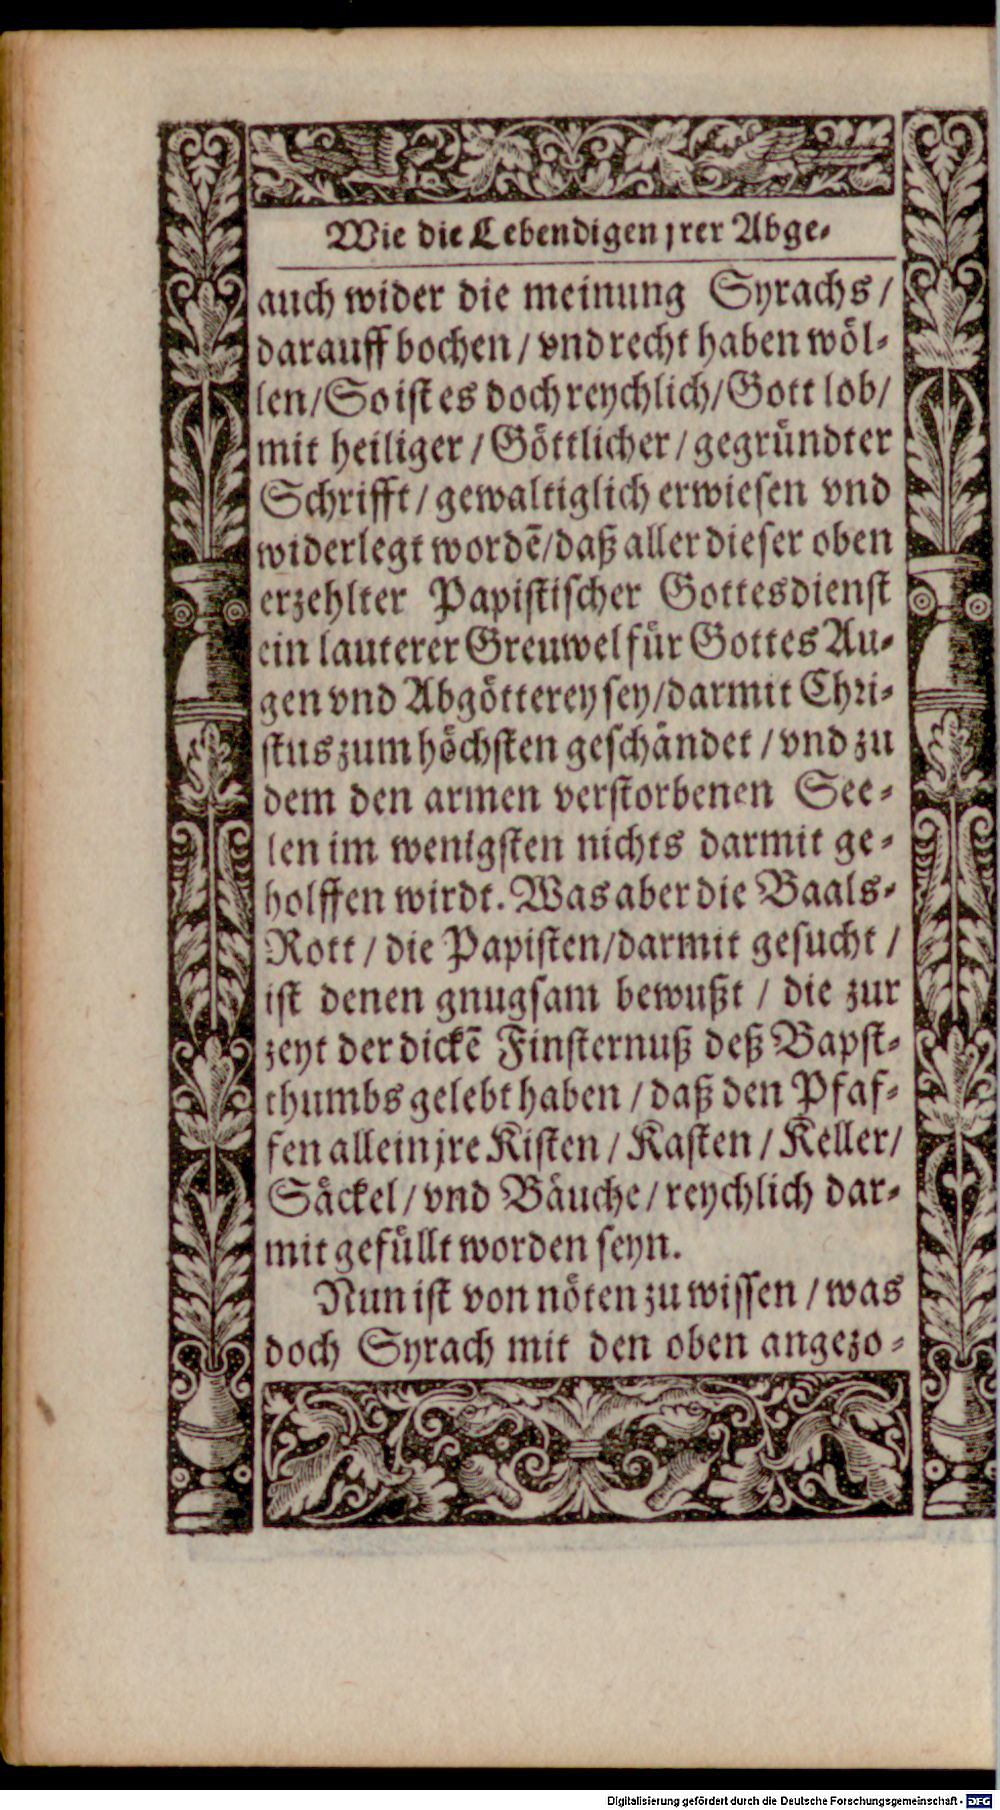 Wie die Lebendigen jrer Abge-
auch wider die meinung Syrachs /
darauff bochen / vnd recht haben wöl-
len / So ist es doch reychlich / Gott lob /
mit heiliger / Göttlicher / gegründter
Schrifft / gewaltiglich erwiesen vnd
widerlegt wordẽ / daß aller dieser oben
erzehlter Papistischer Gottesdienst
ein lauterer Greuwel für Gottes Au-
gen vnd Abgötterey sey / darmit Chri-
stus zum höchsten geschändet / vnd zu
dem den armen verstorbenen See-
len im wenigsten nichts darmit ge-
holffen wirdt. Was aber die Baals-
Rott / die Papisten / darmit gesucht /
ist denen gnugsam bewußt / die zur
zeyt der dickẽ Finsternuß deß Bapst-
thumbs gelebt haben / daß den Pfaf-
fen allein jre Kisten / Kasten / Keller /
Säckel / vnd Bäuche / reychlich dar-
mit gefüllt worden seyn.
Nun ist von nöten zu wissen / was
doch Syrach mit den oben angezo-
Digitalisierung gefördert durch die Deutsche Forschungsgemeinschaft - DFG